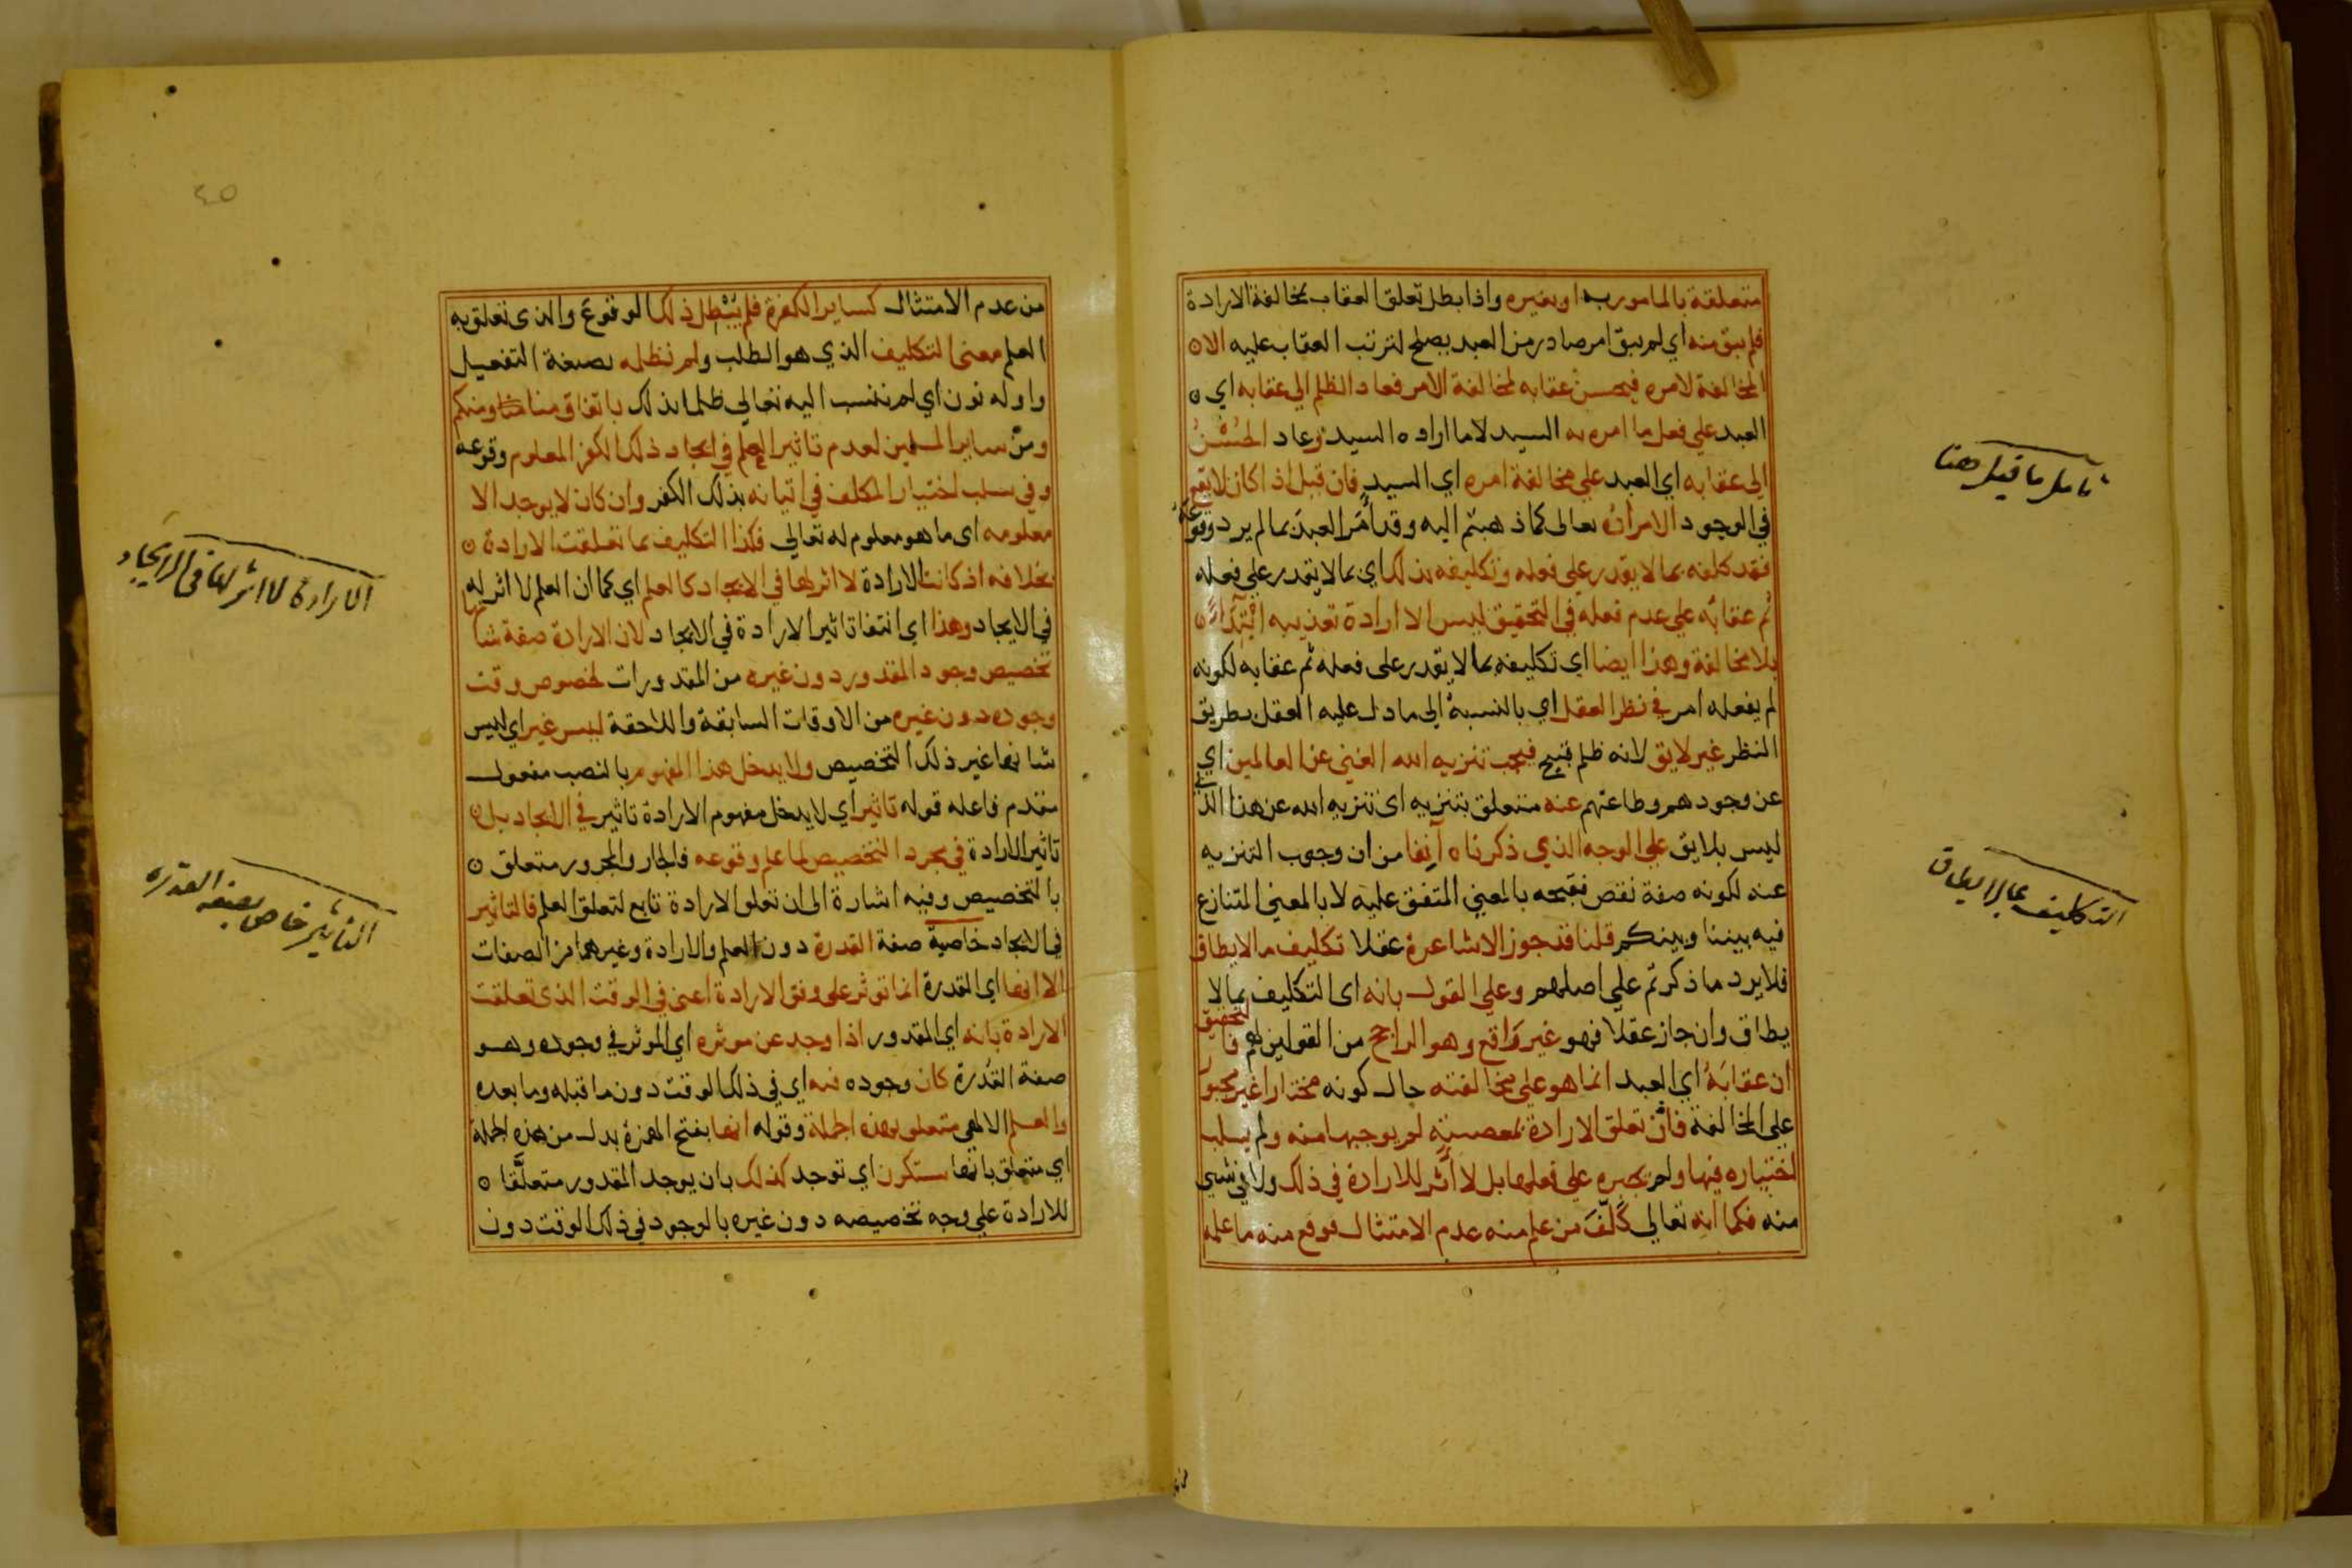 متعلقة بالمامور به او بغيره واذا بطل تعلق العقاب بمخالفة الارادة
فلم يبق منه اي لم يبق امر صادر من العبد يصلح لترتب العقاب عليه الا ٥
المخالفة لامره فيحسن عقابه لمخالفة الامر فعاد الظلم الي عقابه اي ٥
العبد علي فعل ما امره به السيد لا ما اراده السيد وعاد الحُسْنُ
الي عقابه اي العبد علي مخالفة امره اي السيد فان قيل اذا كان لا يقع
في الوجود الا مراده تعالى كما ذهبتم اليه وقد أمَر العبدَ بما لم يرد وقوعه
فقد كلفه بما لا يقدر علي فعله وتكليفه بذلك اي بما لا يقدر علي فعله
ثم عقابُه علي عدم فعله في التحقيق ليس الا ارادة تعذيبه ابْتِدَاءً ٥
بلا مخالفة وهذا ايضا اي تكليفه بما لا يقدر على فعله ثم عقابه لكونه
لم يفعله امر في نظر العقل اي بالنسبة الي ما دل عليه العقل بطريق
النظر غير لايق لانه ظلم قبيح فيجب تنزيه الله الغني عن العالمين اي
عن وجودهم وطاعتهم عنه متعلق بتنزيه اى تنزيه الله عن هذا الذي
ليس بلايق علي الوجه الذي ذكرناه آنِفا من ان وجوب التنزيه
عنه لكونه صفة نقص فقبحه بالمعني المتفق عليه لا بالمعني المتنازع
فيه بيننا وبينكم قلنا قد جوز الاشاعرة عقلا تكليف ما لا يطاق
فلا يرد ما ذكرتم علي اصلهم وعلي القول بانه اى التكليف بما لا
يطاق وان جاز عقلا فهو غير وَاقع وهو الراجح من القولين لهم فالتحقيق
ان عقابَهُ اي العبد انما هو علي مخالفته حال كونه مختارا غير مجبور
علي المخالفة فانّ تعلق الارادة بمعصيته لم يوجبها منه ولم يسلب
اختياره فيها ولم يجبره علي فعلها بل لا أثر للارادة في ذلك ولا في شي
منه فكما انه تعالي كَلّفَ من علم منه عدم الامتثال فوقع منه ما علمه
تامل ما قيل هنا
التكليف بما لا يطاق
٤٥
من عدم الامتثال كساير الكفرة فلم يُبْطِل ذلك الوقوعَ والذى تعلق به
العلم معنى التكليف الذي هو الطلب ولم نظلمه بصيغة التفعيل
واوله نون اي لم ننسب اليه تعالي ظلما بذلك باتفاق منا ومنكم
ومن ساير المسلمين لعدم تاثير العلم في ايجاد ذلك الكفر المعلوم وقوعه
وفي سلب اختيار المكلف في اتيانه بذلك الكفر وان كان لا يوجد الا
معلومه اى ما هو معلوم له تعالي فكذا التكليف بما تعلقت الارادة ٥
بخلافه اذ كانت الارادة لا اثر لها في الايجاد كالعلم اي كما ان العلم لا اثر له
في الايجاد وهذا اي انتفا تاثير الارادة في الايجاد لان الارادة صفة شانها
تخصيص وجود المقدور دون غيره من المقدورات بخصوص وقت
وجوده دون غيره من الاوقات السابقة واللاحقة ليس غير اي ليس
شانها غير ذلك التخصيص ولا يدخل هذا المفهوم بالنصب مفعول
مقدم فاعله قوله تاثير اي لا يدخل مفهوم الارادة تاثير في الايجاد بل ٥
تاثير الارادة في مجرد التخصيص لما علم وقوعه فالجار والمجرور متعلق ٥
بالتخصيص وفيه اشارة الى ان تعلق الارادة تابع لتعلق العلم فالتاثير
في الايجاد خاصية صفة القدرة دون العلم والارادة وغيرهما من الصفات
الا انها اي القدرة انما توثر على وفق الارادة اعني في الوقت الذى تعلقت
الارادة بانه اي المقدور اذا وجد عن موثره اي الموثر في وجوده وهو
صفة القدرة كان وجوده فيه اي في ذلك الوقت دون ما قبله وما بعده
والعلم الالهي متعلق بهذه الجملة وقوله انها بفتح الهمزة بدل من هذه الجملة
اي متعلق بانها ستكون اي توجد كذلك بان يوجد المقدور متعلَّقا ٥
للارادة علي وجه تخصيصه دون غيره بالوجود في ذلك الوقت دون
الارادة لا اثر لها فى الايجاد
التاثير خاص بصفة القدره